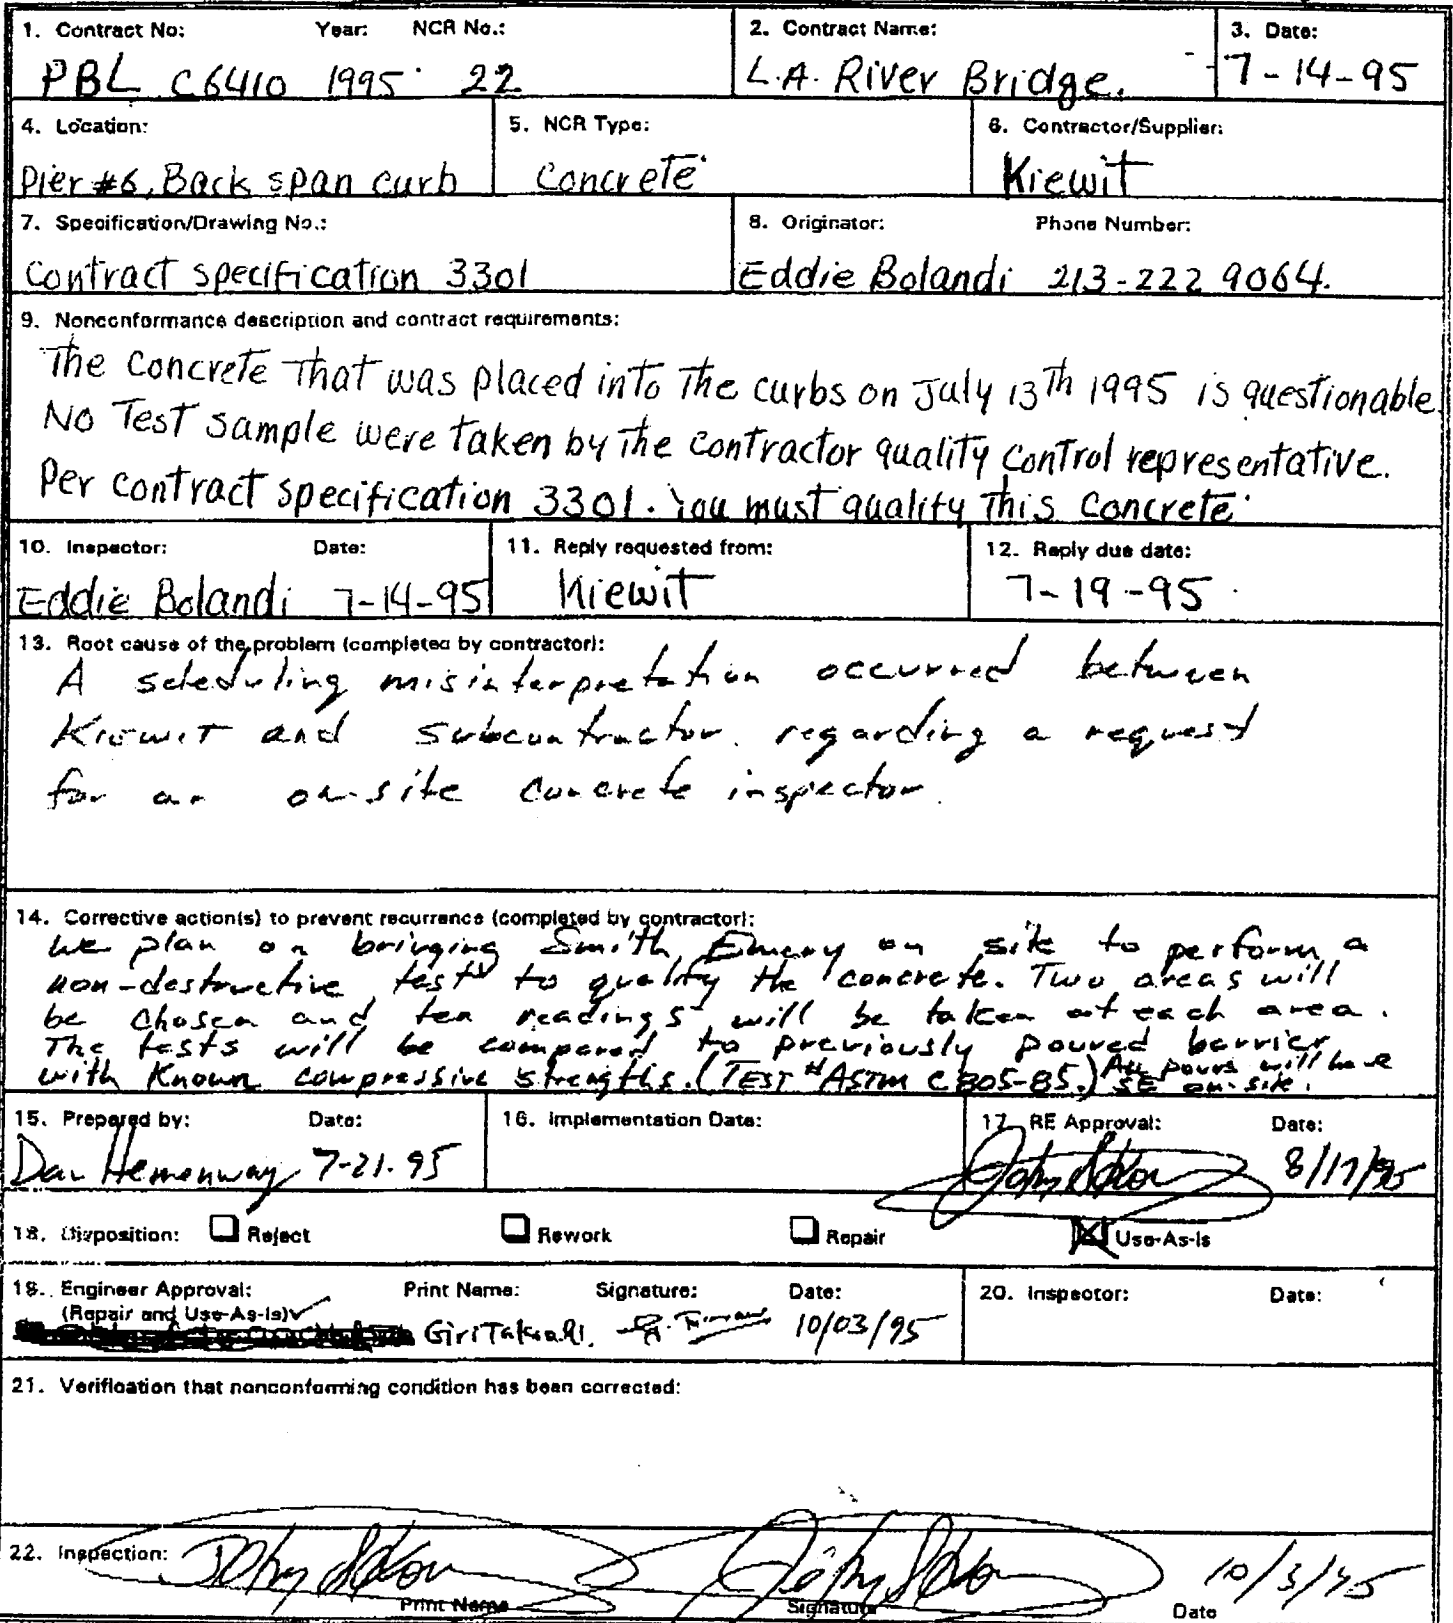 1. Contract No: Year: NCR No.:
PBL C6410 1995 22
2. Contract Name:
L.A. River Bridge.
3. Date:
7-14-95
4. Location:
Pier #6, Back span curb
5. NCR Type:
Concrete
6. Contractor/Supplier:
Kiewit
7. Specification/Drawing No.:
Contract specification 3301
8. Originator: Phone Number:
Eddie Bolandi 213-222 9064.
9. Nonconformance description and contract requirements:
The Concrete That was placed into The curbs on July 13Th 1995 is questionable.
No Test sample were taken by The contractor quality control representative.
Per contract specification 3301. You must qualify This Concrete
10. Inspector: Date:
Eddie Bolandi 7-14-95
11. Reply requested from:
Kiewit
12. Reply due date:
7-19-95
13. Root cause of the problem (completed by contractor):
A scheduling misinterpretation occurred between
Kiewit and subcontractor regarding a request
for an on-site concrete inspector.
14. Corrective action(s) to prevent recurrence (completed by contractor):
We plan on bringing Smith Emery on site to perform a
non-destructive test to qualify the concrete. Two areas will
be chosen and ten readings will be taken at each area.
The tests will be compared to previously poured barrier
with Known compressive strengths. (TEST #ASTM C805-85.) All pours will have
SE on-site.
15. Prepared by: Date:
Dan Hemenway 7-21-95
16. Implementation Date:
17. RE Approval: Date:
8/17/95
18. Disposition: Reject Rework Repair Use-As-Is
19. Engineer Approval: Print Name: Signature: Date:
(Repair and Use-As-Is)
10/03/95
20. Inspector: Date:
21. Verification that nonconforming condition has been corrected:
22. Inspection:
10/3/95
Print Name Signature Date